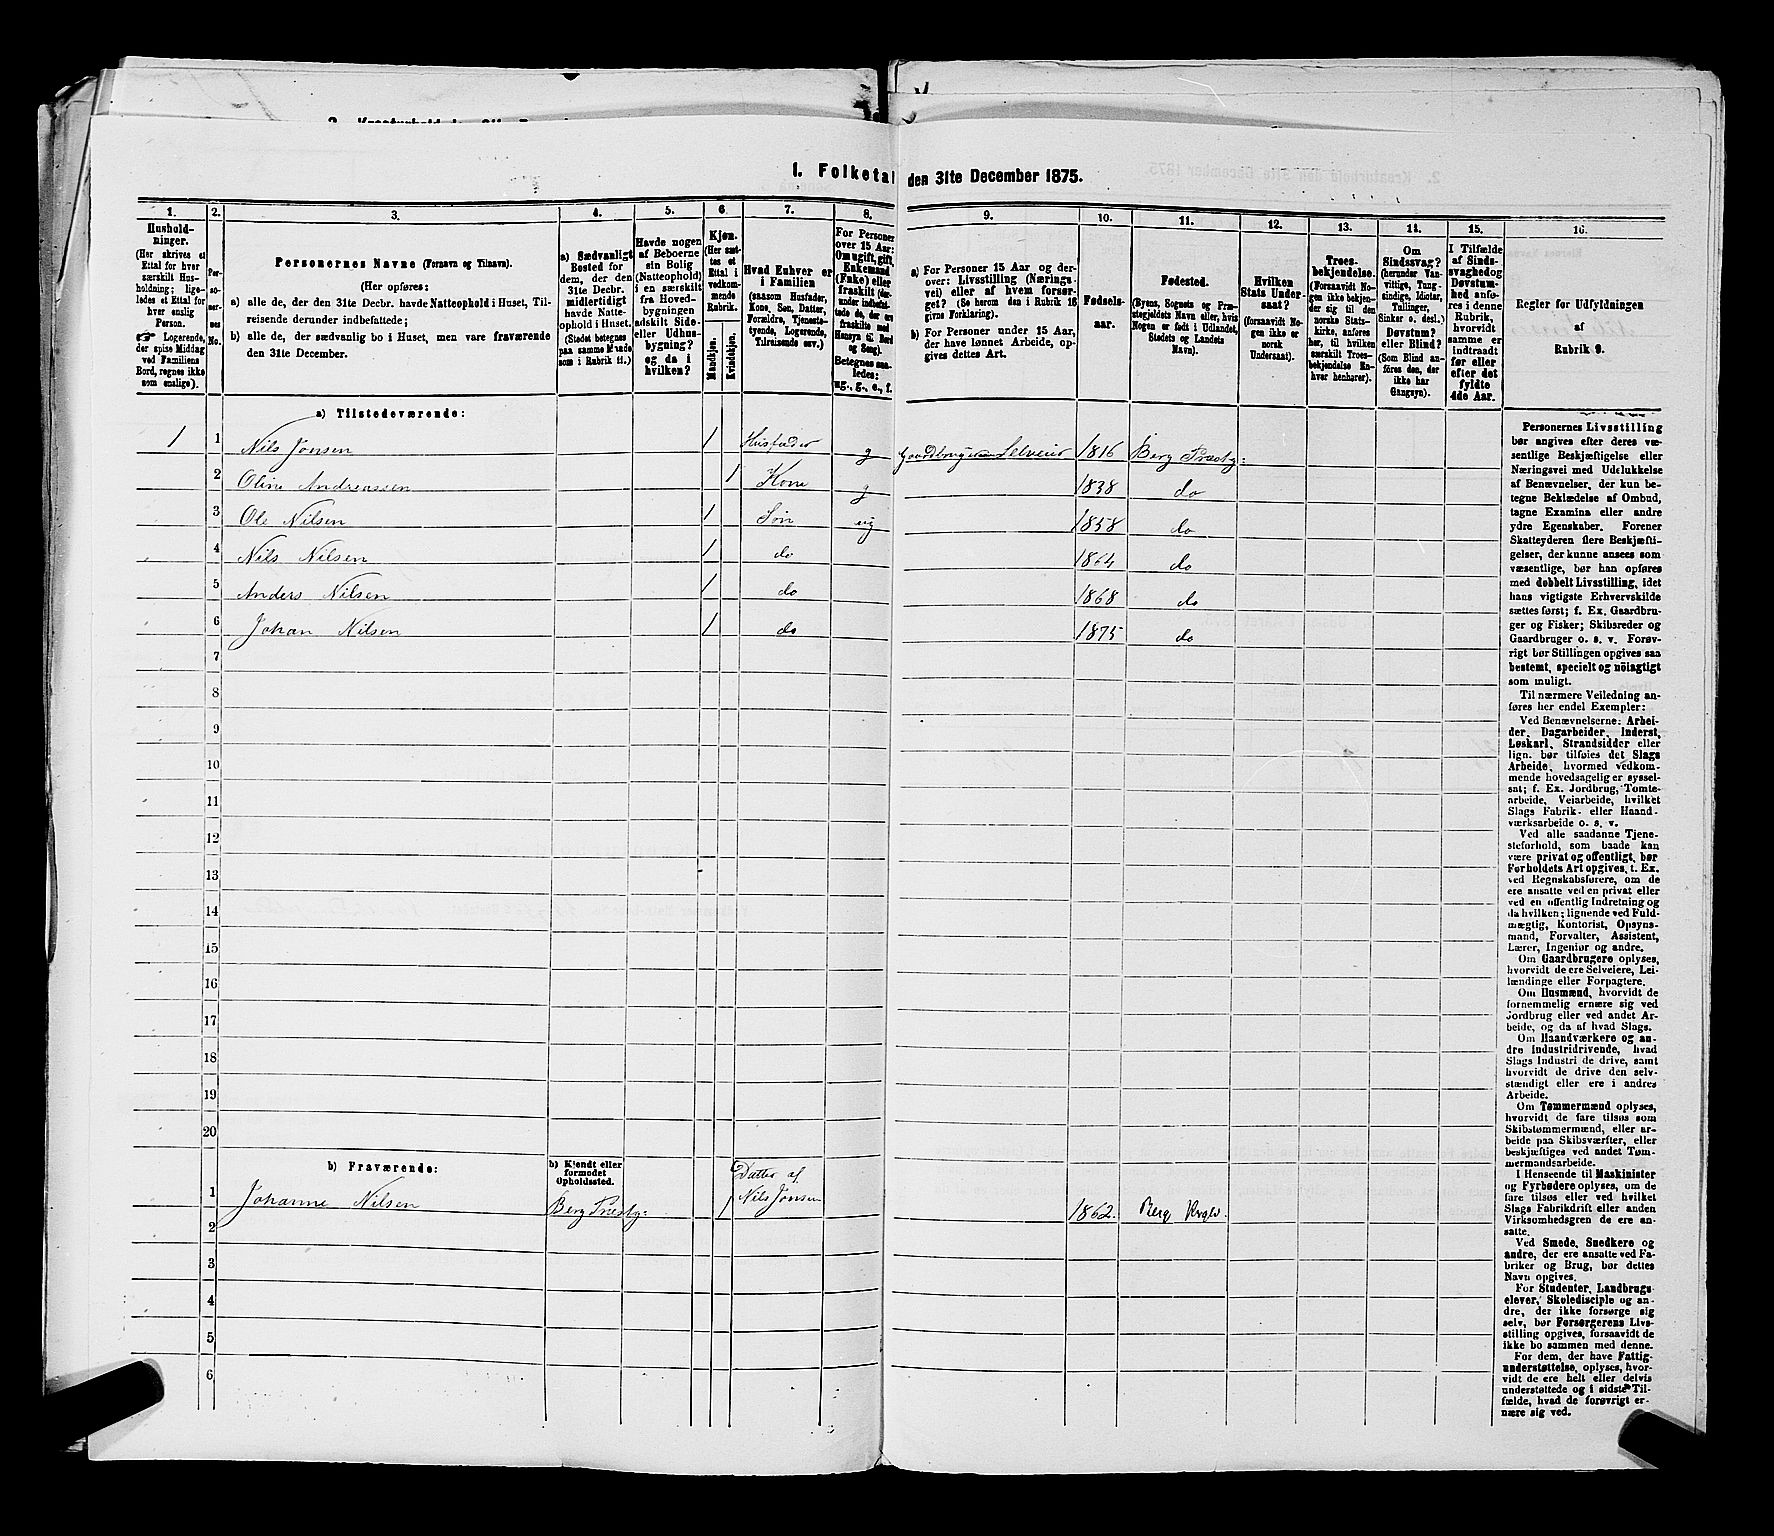 1. Folketal den 31te December 1875.
1.
2.
3.
4.
5.
6.
7.
8.
9.
10.
11.
12.
13.
14.
15.
16.
Hushold-
ninger.
(Her skrives et
Ettal for hver
særskilt Hus-
holdning; lige-
ledes et Ettal for
hver enslig
Person.
☞ Logerende,
der spise Middag
ved Familiens
Bord, regnes ikke
som enslige).
Per-
so-
ner-
nes
No.
Personernes Navne (Fornavn og Tilnavn).
(Her opføres:
a) alle de, der den 31te Decbr. havde Natteophold i Huset, Til-
reisende derunder indbefattede;
b) alle de, der sædvanlig bo i Huset, men vare fraværende
den 31te December.
a) Sædvanligt
Bosted for
dem, der den
31te Decbr.
midlertidigt
havde Natte-
ophold i Huset.
(Stedet betegnes
paa samme Maade
som i Rubrik 11.)
Havde nogen
af Beboerne
sin Bolig
(Natteophold)
i en særskilt
fra Hoved-
bygningen
adskilt Side-
eller Udhus-
bygning?
og da i
hvilken?
Kjøn.
(Her sæt-
tes et
Ettal i
vedkom-
mende
Rubrik.
Mandkjøn.
Kvindekjøn.
Hvad Enhver er
i Familien
(saasom Husfader,
Kone, Søn, Datter,
Forældre, Tjeneste-
tyende, Logerende,
Tilreisende osv.)
For Personer
over 15 Aar:
Om ugift, gift,
Enkemand
(Enke) eller
fraskilt
Betegnes saa-
ledes:
ug., g., e., f.
a) For Personer 15 Aar og der-
over: Livsstilling (Nærings-
vei) eller af hvem forsør-
get? (Se herom den i Rubrik 16
givne Forklaring).
b) For Personer under 15 Aar,
der have lønnet Arbeide, op-
gives dettes Art.
Fødsels-
aar.
Fødested.
(Byens, Sognets og Præ-
stegjeldets Navn eller, hvis
Nogen er født i Udlandet,
Stedets og Landets
Navn).
Hvilken
Stats Under-
saat?
(forsaavidt No-
gen ikke er
norsk
Undersaat).
Troes-
bekjendelse.
(Forsaavidt No-
gen ikke bekjen-
der sig til den
norske Stats-
kirke, anføres
her, til hvilken
særskilt Troes-
bekjendelse En-
hver henhører).
Om
Sindssvag?
(herunder Van-
vittige, Tung-
sindige, Idioter,
Tullinger,
Sinker o. desl.)
Døvstum?
eller Blind?
(Som Blind an-
føres den, der
ikke har
Gangsyn).
I Tilfælde
af Sinds-
svaghed og
Døvstum-
hed anfø-
res i denne
Rubrik,
hvorvidt
samme er
indtraadt
før eller
efter det
fyldte
4de Aar.
Regler for Udfyldningen
af
Rubrik 9.
a) Tilstedeværende:
1 1 Nils Jonsen 1 Husfader g Gaardbruger Selveier 1816 Berg Præstg:
2 Oline Andreassen 1 Kone g 1838 do
3 Ole Nilsen 1 Søn ug 1858 do
4 Nils Nilsen 1 do 1864 do
5 Anders Nilsen 1 do 1868 do
6 Johan Nilsen 1 do 1875 do
7
8
9
10
11
12
13
14
15
16
17
18
19
20
b) Fraværende:
b) Kjendt eller
formodet
Opholdssted.
1 Johanne Nilsen Berg Præstg: 1 Datter af
Nils Jonsen 1862. Berg
2
3
4
5
6
Personernes Livsstilling
bør angives efter deres væ-
sentlige Beskjæftigelse eller
Næringsvei med Udelukkelse
af Benævnelser, der kun be-
tegne Beklædelse af Ombud,
tagne Examina eller andre
ydre Egenskaber. Forener
Skatteyderen flere Beskjæfti-
gelser, der kunne ansees som
væsentlige, bør han opføres
med dobbelt Livsstilling, idet
hans vigtigste Erhvervskilde
sættes først; f. Ex. Gaardbru-
ger og Fisker; Skibsreder og
Gaardbruger o. s. v. Forøv-
rigt bør Stillingen opgives saa
bestemt, specielt og nøiagtigt
som muligt.
Til nærmere Veiledning an-
føres her endel Exempler:
Ved Benævnelserne: Arbei-
der, Dagarbeider, Inderst,
Løskarl, Strandsidder eller
lign. bør tilføies det Slags
Arbeide, hvormed vedkom-
mende hovedsagelig er syssel-
sat; f. Ex. Jordbrug, Tomte-
arbeide, Veiarbeide, hvilket
Slags Fabrik- eller Haand-
værksarbeide o. s. v.
Ved alle saadanne Tjene-
steforhold, som baade kan
være privat og offentligt, bør
Forholdets Art opgives, t. Ex.
ved Regnskabsførere, om de
ere ansatte ved en privat eller
ved en offentlig Indretning og
da hvilken; lignende ved Fuld-
mægtig, Kontorist, Opsyns-
mand, Forvalter, Assistent,
Lærer, Ingeniør og andre.
Om Gaardbrugere oplyses,
hvorvidt de ere Selveiere, Lei-
lændinge eller Forpagtere.
Om Husmænd, hvorvidt de
fornemmelig ernære sig ved
Jordbrug eller ved andet Ar-
beide, og da af hvad Slags.
Om Haandværkere og an-
dre Industridrivende, hvad
Slags Industri de drive, samt
hvorvidt de drive den selv-
stændigt eller ere i andres
Arbeide.
Om Tømmermænd oplyses,
hvorvidt de fare tilsøs som
Skibstømmermænd, eller ar-
beide paa Skibsværfter, eller
beskjæftiges ved andet Tøm-
mermandsarbeide.
I Henseende til Maskinister
og Fyrbødere oplyses, om de
fare tilsøs eller ved hvilket
Slags Fabrikdrift eller anden
Virksomhedsgren de ere an-
satte.
Ved Smede, Snedkere og
andre, der ere ansatte ved Fa-
briker og Brug, bør dettes
Navn opgives.
For Studenter, Landbrugs-
elever, Skoledisciple og an-
dre, der ikke forsørge sig
selv, bør Forsørgerens Livs-
stilling opgives, forsaavidt de
ikke bo sammen med denne.
For dem, der have Fattig-
understøttelse, oplyses, hvor-
vidt de ere helt eller delvis
understøttede og i sidste Til-
fælde, hvad de forøvrigt er-
nære sig ved.